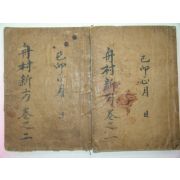 己卯 月 日
舟村新方卷之一
己卯 月 日
舟村新方卷之二